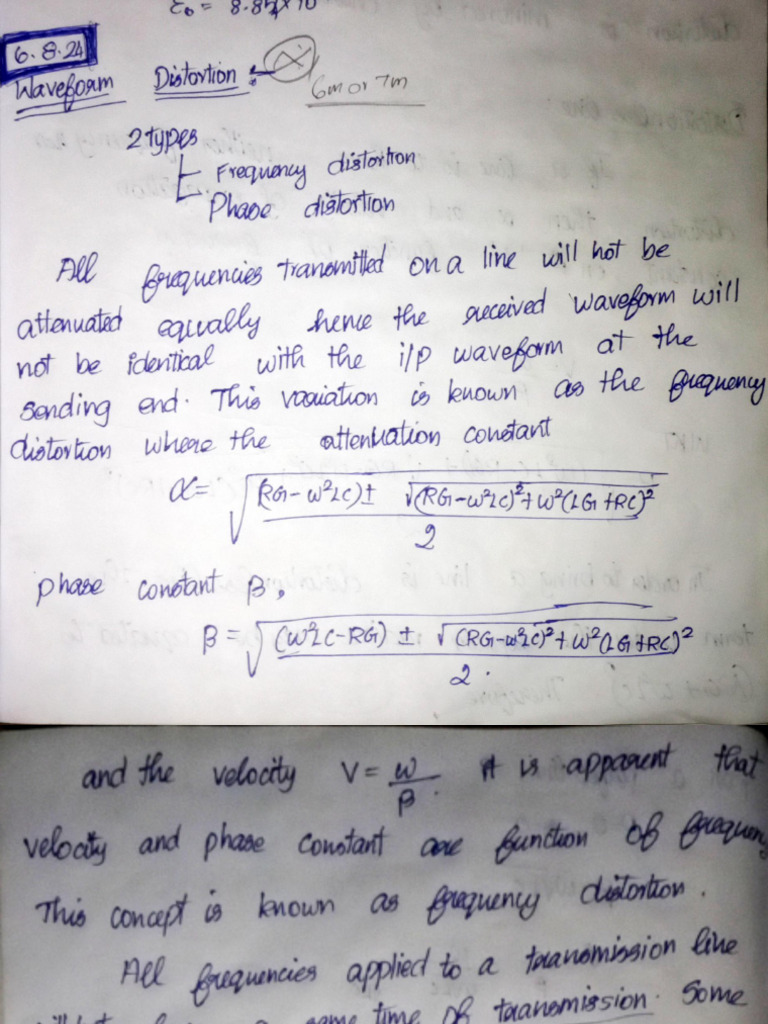 ε₀ = 8.854×10
6.8.24
Waveform Distortion :-
6m or 7m
2 types
Frequency distortion
Phase distortion
All frequencies transmitted on a line will not be
attenuated equally hence the received waveform will
not be identical with the i/p waveform at the
sending end. This variation is known as the frequency
distortion where the attenuation constant
α = √((RG-ω²LC) ± √((RG-ω²LC)²+ω²(LG+RC)²)/2)
phase constant β,
β = √((ω²LC-RG) ± √((RG-ω²LC)²+ω²(LG+RC)²)/2).
and the velocity V = ω/β. It is apparent that
velocity and phase constant are function of frequen
This concept is known as frequency distortion.
All frequencies applied to a transmission line
same time of transmission. Some